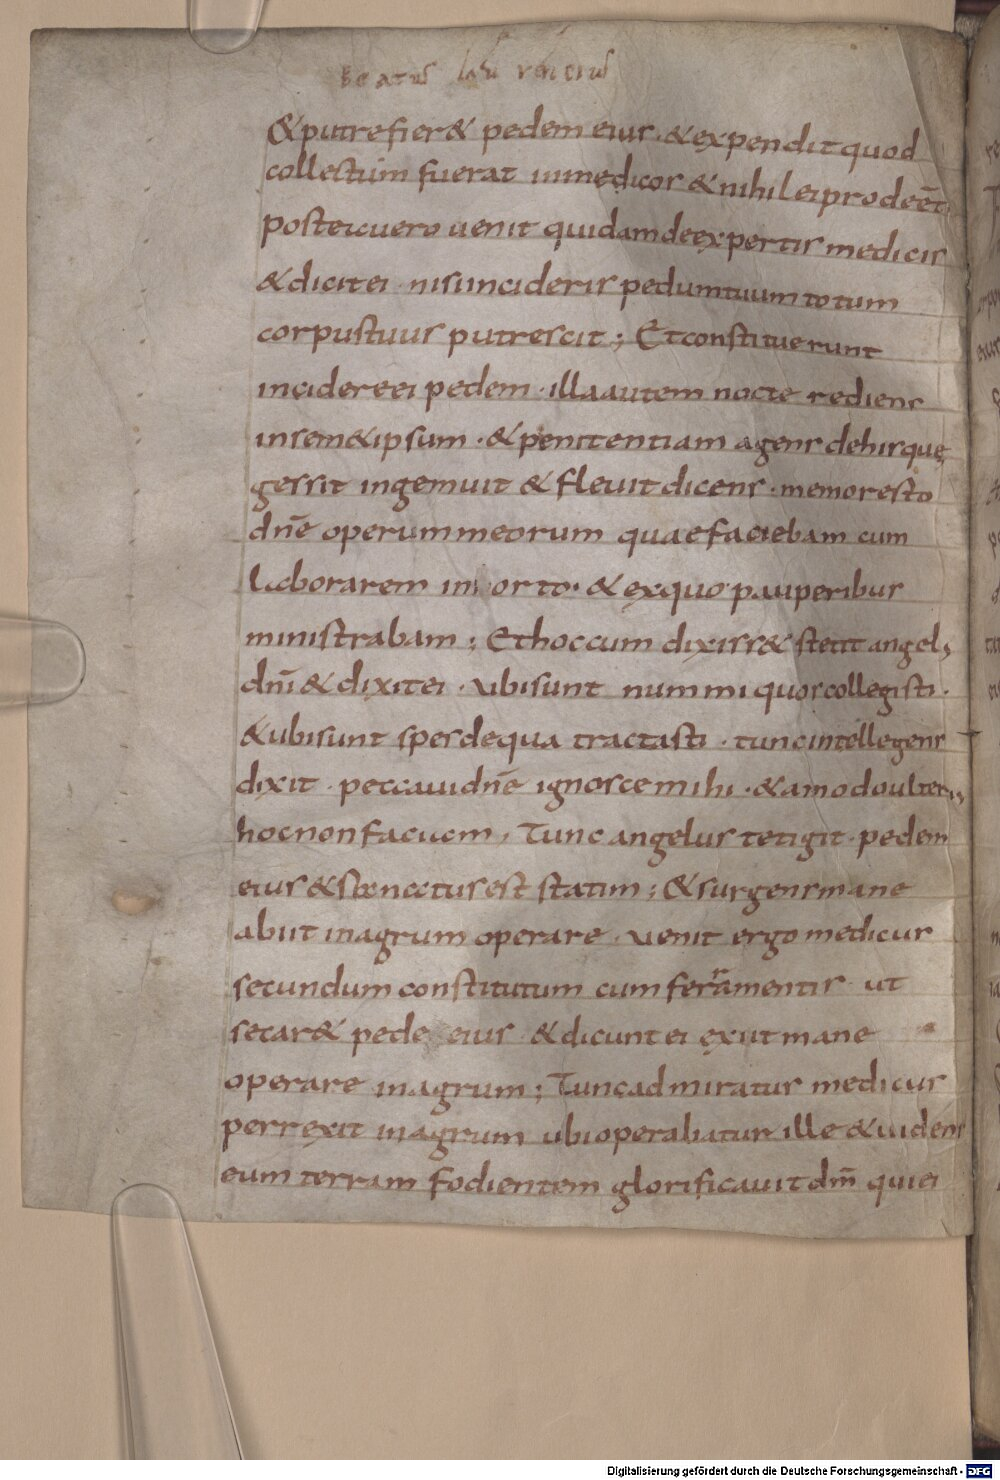 beatus lau rencius
& putrefier& pedem eius · & expendit quod
collectum fuerat in medicos & nihil ei prodeēt
postea uero uenit quidam de expertis medicis
& dicit ei · nisi incideris pedum tuum totum
corpus tuus putrescit ; Et constituerunt
incidere ei pedem · illa autem nocte rediens
in sem&ipsum · & penitentiam agens de his que
gessit ingemuit & fleuit dicens · memor esto
dn̄e operum meorum quae faciebam cum
laborarem in orto · & ex quo pauperibus
ministrabam ; Et hoc cum dixiss& stetit angel;
dn̄i & dixit ei · ubi sunt nummi quos collegisti ·
& ubi sunt spes de qua tractasti · tunc intellegens
dixit · peccaui dn̄e ignosce mihi · & amodo ulterius
hoc non faciam , Tunc angelus tetigit · pedem
eius & sanatus est statim ; & surgens mane
abiit in agrum operare · uenit ergo medicus
secundum constitutum cum feramentis ut
secar& pede eius · & dicunt ei exiit mane
operare in agrum ; Tunc admiratus medicus
perrexit in agrum ubi operabatur ille & uidens
eum terram fodientem glorificauit dm̄ qui ei
Digitalisierung gefördert durch die Deutsche Forschungsgemeinschaft - DFG